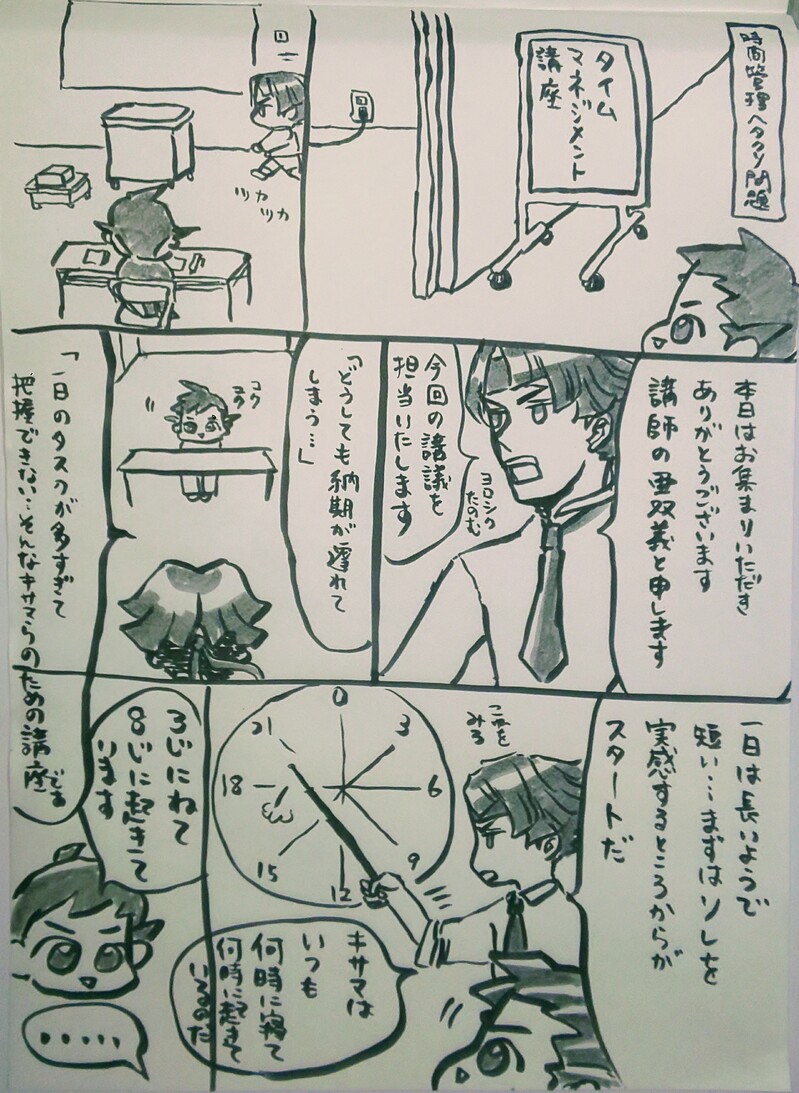 時間管理ヘタクソ問題
タイム
マネジメント
講座
ツカ
ツカ
本日はお集まりいただき
ありがとうございます
講師の亜双義と申します
今回の講議を
担当いたします
ヨロシク
たのむ
「どうしても納期が遅れて
しまう…」
コク
コク
「一日のタスクが多すぎて
把握できない…そんなキサマらのための講座である
一日は長いようで
短い…まずはソレを
実感するところからが
スタートだ
これを
みろ
0
3
6
9
12
15
18
21
キサマは
いつも
何時に寝て
何時に起きて
いるのだ
3じにねて
8じに起きて
います
・・・・・